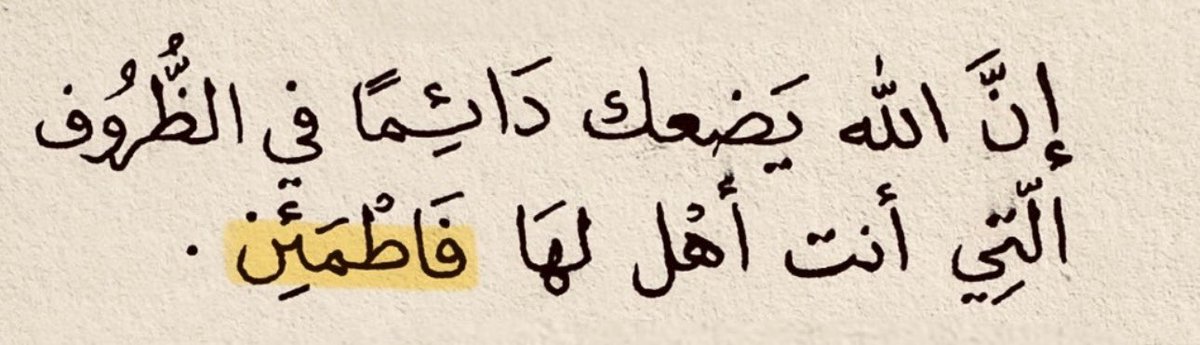 إنَّ الله يَضعك دَائِمًا في الظُّرُوف
الّتِي أنت أهْل لهَا فَاطْمَئِن .